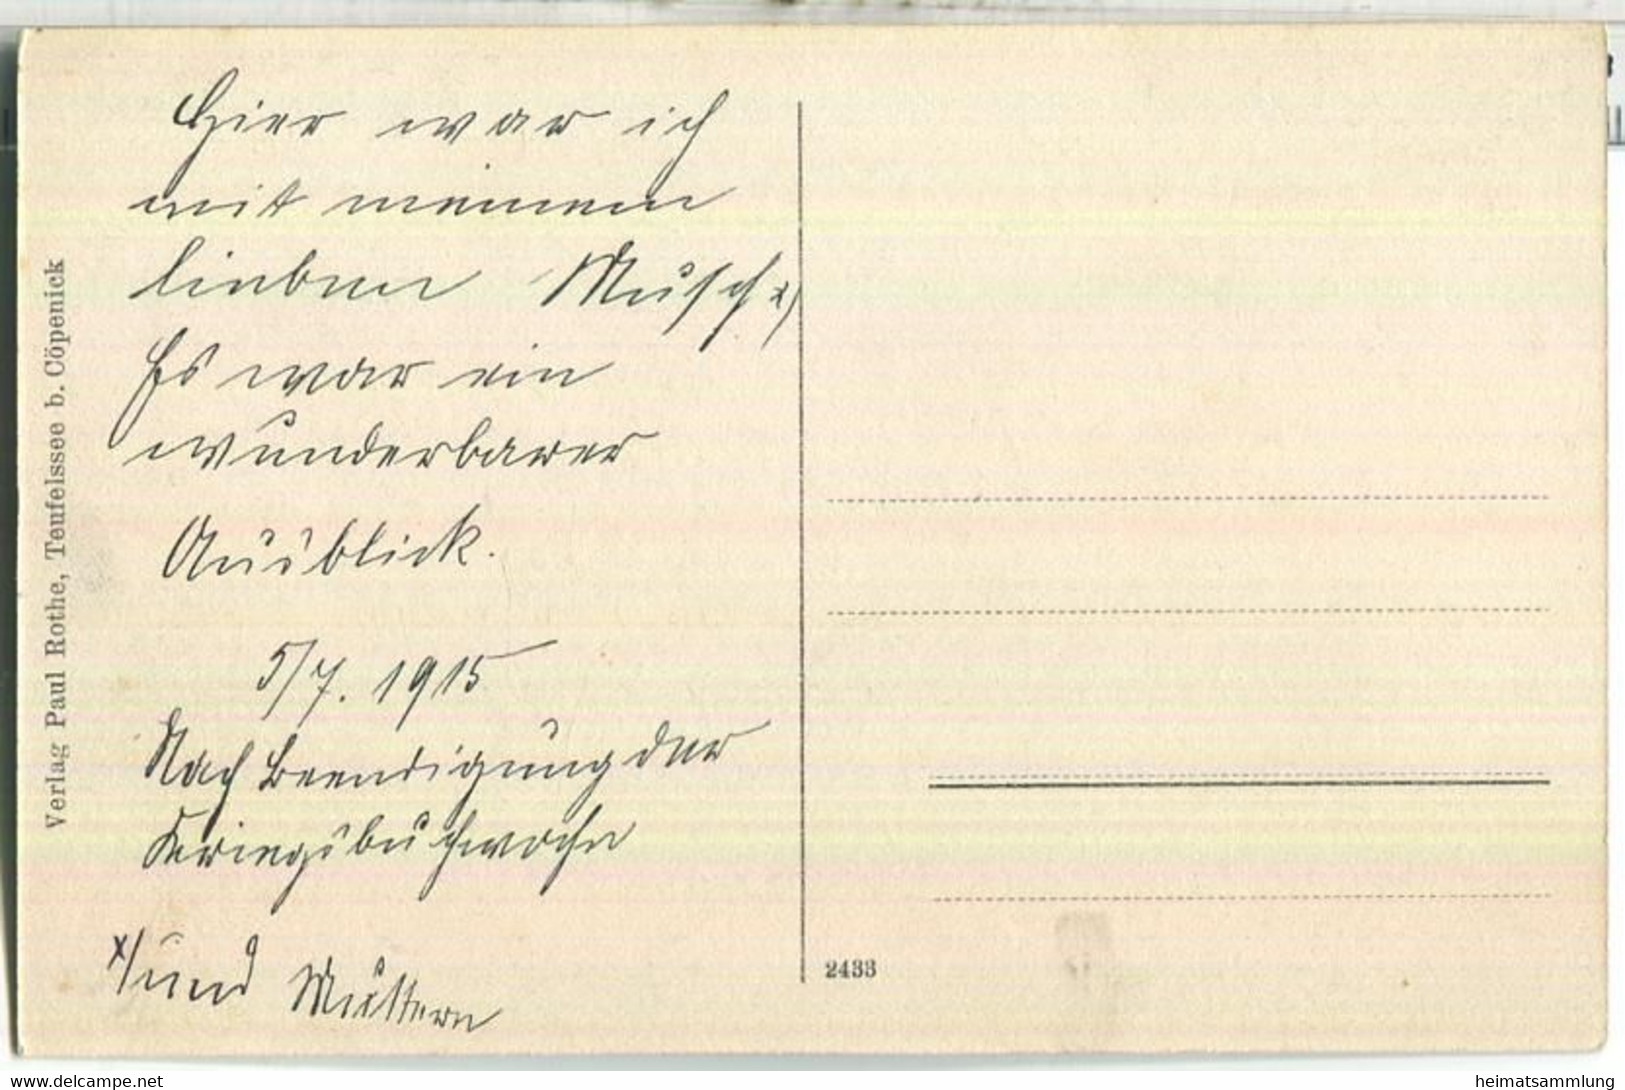 Hier war ich
mit meinem
lieben Musch x)
Es war ein
wunderbarer
Ausblick.
5/7. 1915
Nach Beendigung der
Kriegsbuchwoche
x) und Muttern
Verlag Paul Rothe, Teufelssee b. Cöpenick
2433
heimatsammlung
www.delcampe.net